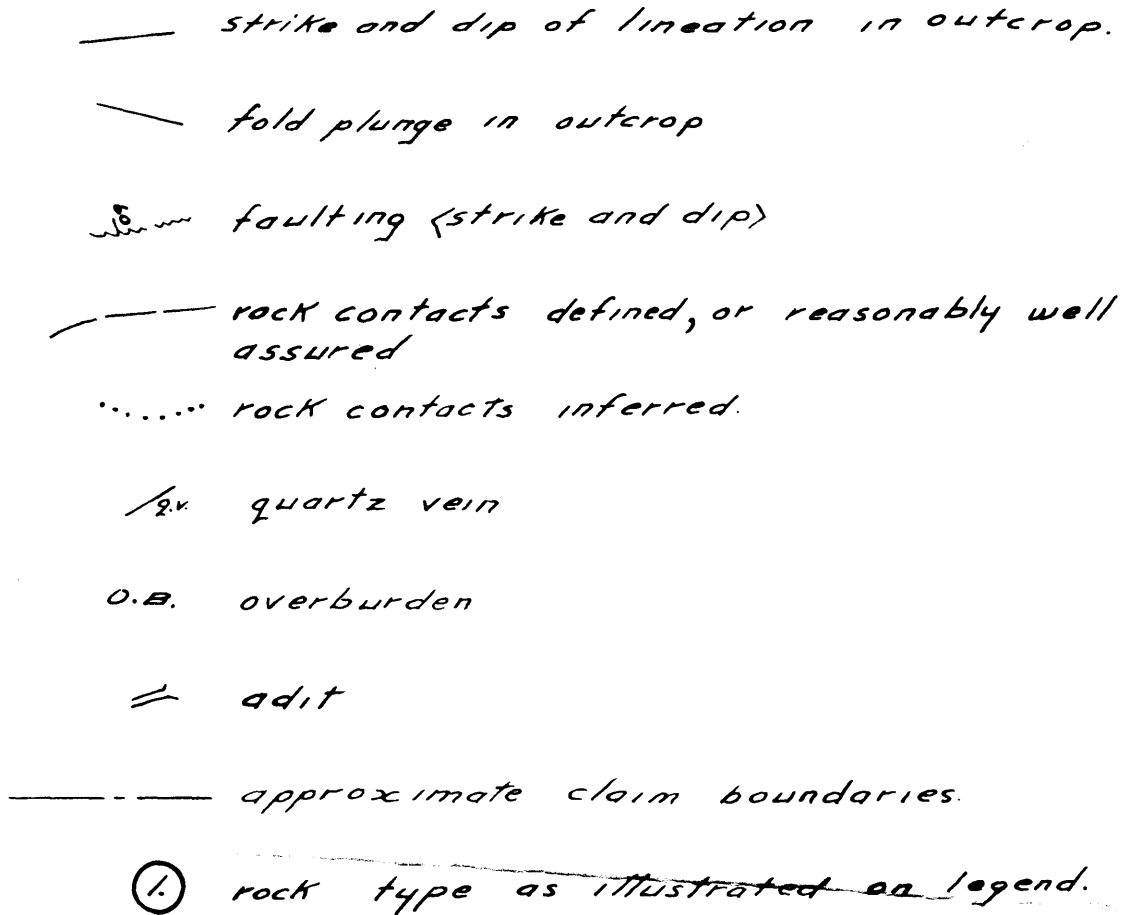 strike and dip of lineation in outcrop.
fold plunge in outcrop
faulting <strike and dip>
rock contacts defined, or reasonably well
assured
rock contacts inferred.
q.v. quartz vein
O.B. overburden
adit
approximate claim boundaries.
1. rock type as illustrated on legend.